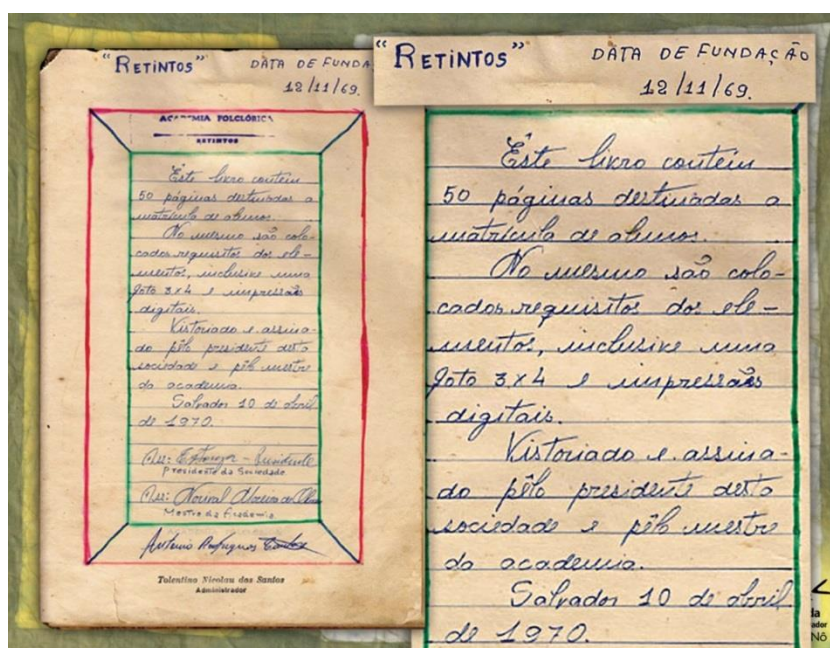 "RETINTOS" DATA DE FUNDA
12/11/69.
ACADEMIA FOLCLÓRICA
RETINTOS
Êste livro contém
50 páginas destinadas a
matrícula de alunos.
No mesmo são colo-
cados requisitos dos ele-
mentos, inclusive uma
foto 3x4 e impressões
digitais.
Vistoriado e assina-
do pêlo presidente desta
sociedade e pêlo mestre
da academia.
Salvador 10 de abril
de 1970.
Presidente da Sociedade
Ass: Norival
Mestre da Academia
Antonio
Tolentino Nicolau dos Santos
Administrador
"RETINTOS" DATA DE FUNDAÇÃO
12/11/69.
Êste livro contém
50 páginas destinadas a
matrícula de alunos.
No mesmo são colo-
cados requisitos dos ele-
mentos, inclusive uma
foto 3x4 e impressões
digitais.
Vistoriado e assina-
do pêlo presidente desta
sociedade e pêlo mestre
da academia.
Salvador 10 de abril
de 1970.
la
ador
Nô